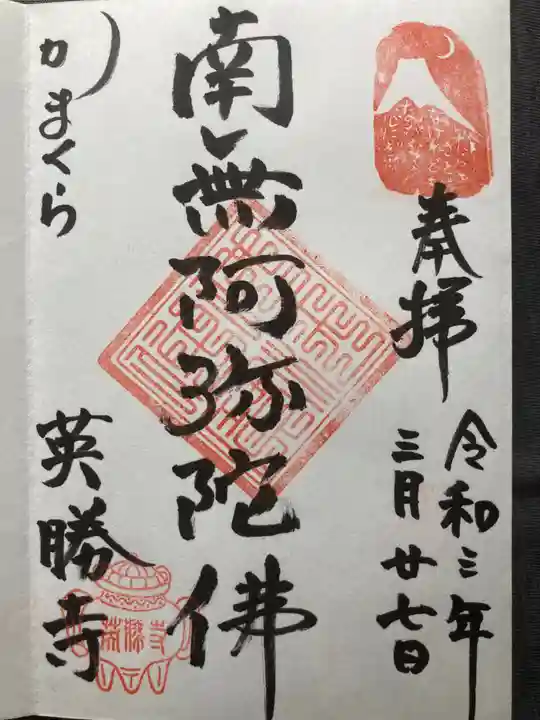 奉拝
令和三年
三月廿七日
南無阿弥陀佛
かまくら
英勝寺
英勝寺